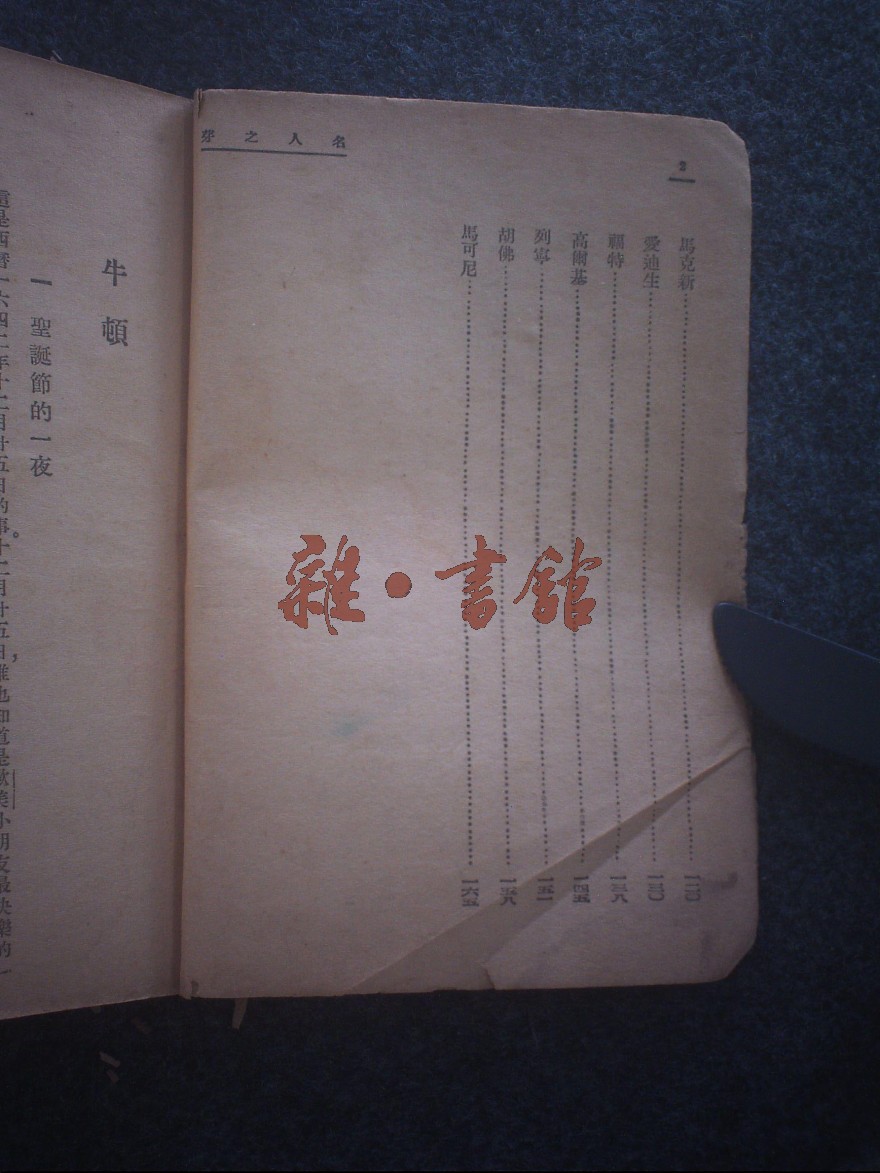 名人之芽
2
馬克新……一二〇
愛迪生……一三〇
福特……一三八
高爾基……一四五
列寧……一五一
胡佛……一五八
馬可尼……一六五
牛頓
一 聖誕節的一夜
這是西曆一六四二年十二月廿五日的事。十二月廿五日，誰也知道是歐美小朋友最快樂的一
雜·書館